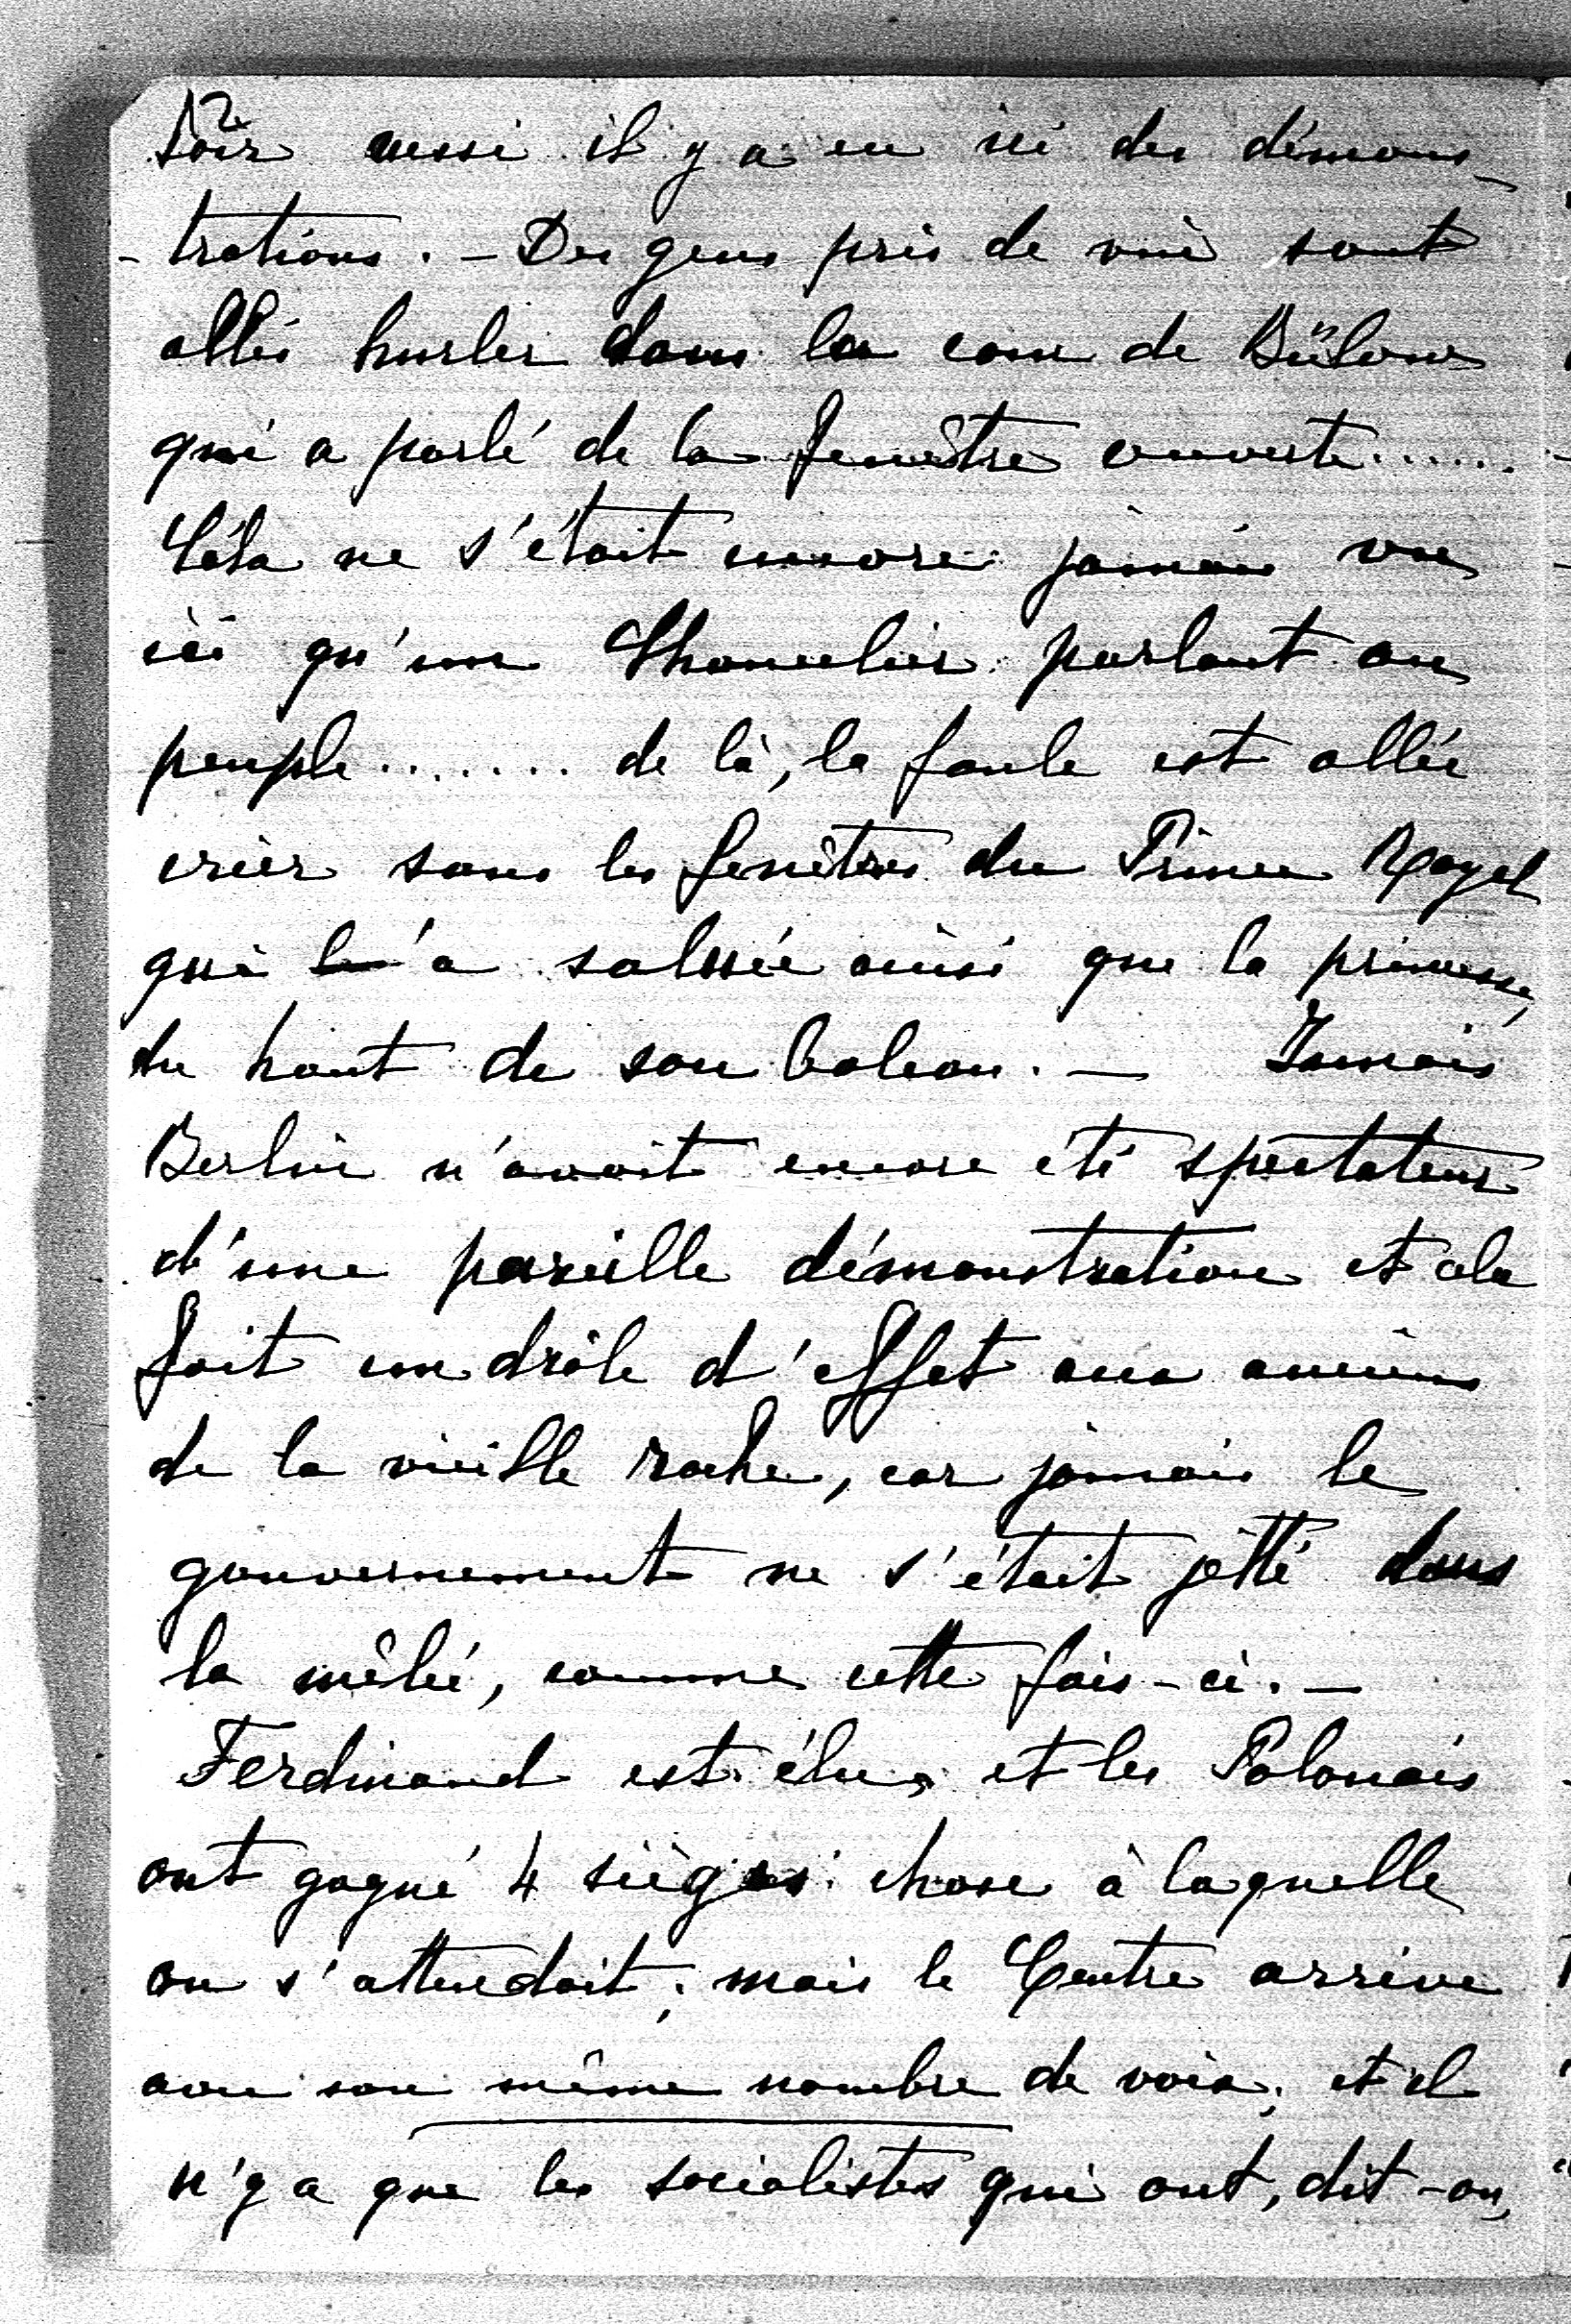 12
soir aussi il y a eu ici des démons-
-trations. - Des gens pris de vin sont
allés hurler dans la cour de Bülow
qui a parlé de la fenêtre ouverte......
Céla ne s'était encore jamais vu
ici qu'un Chancelier parlant au
peuple....... de là, la foule est allée
crier sous les fenêtres du Prince Royal
qui l'a saluée ainsi que la princesse,
du haut de son balcon. — Jamais
Berlin n'avait encore été spectateur
d'une pareille démonstration et cela
fait un drôle d'effet aux anciens
de la vieille roche, car jamais le
gouvernement ne s'était jetté dans
la mêlée, comme cette fois-ci. —
Ferdinand est élu, et les Polonais
ont gagné 4 sièges chose à laquelle
on s'attendait; mais le Centre arrive
avec son même nombre de voix; et il
n'y a que les socialistes qui ont, dit-on,